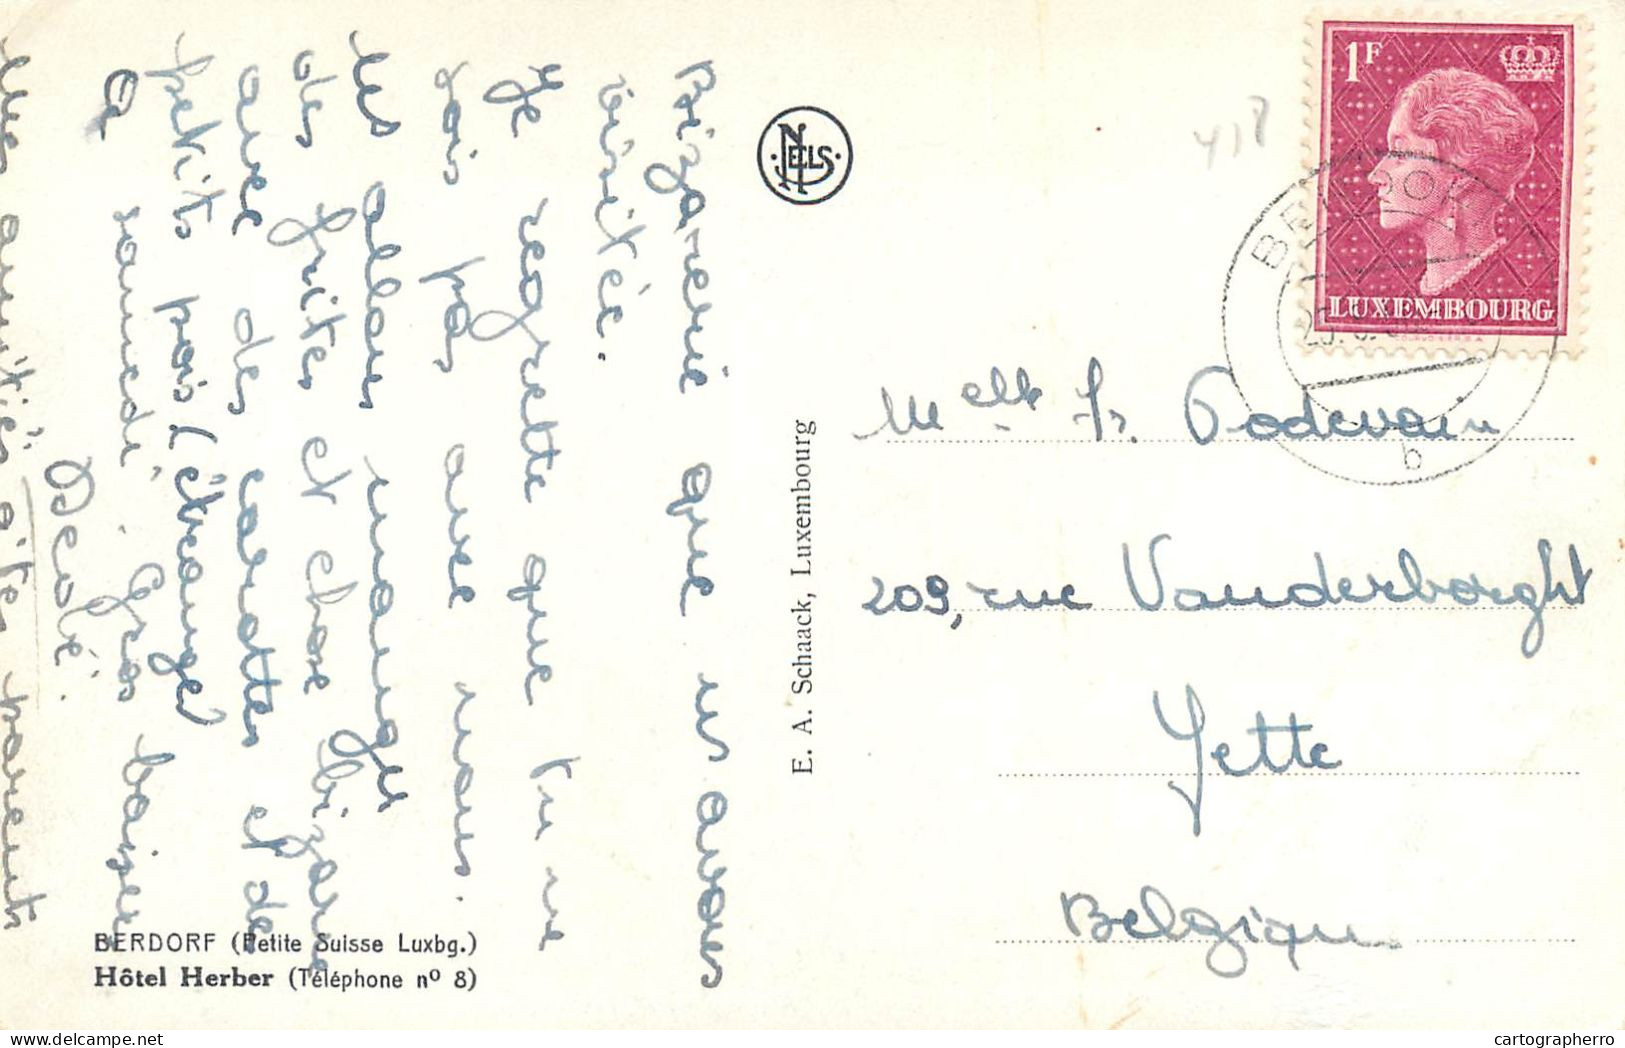 Bizarerie que ns avons
visitée.
Je regrette que tu ne
sois pas avec nous.
ns allons manger
des frites et chose bizare
avec des carottes et de
petits pois (étrange)
a samedi, gros baiser
Dédé.
Mes amitiés à tes parents
NELS
E. A. Schaack, Luxembourg
BERDORF (Petite Suisse Luxbg.)
Hôtel Herber (Téléphone nº 8)
418
1F
LUXEMBOURG
COURVOISIER S.A.
BERDORF
b
Melle Fr. Podevain
209, rue Vanderborght
Jette
Belgique
cartographerro